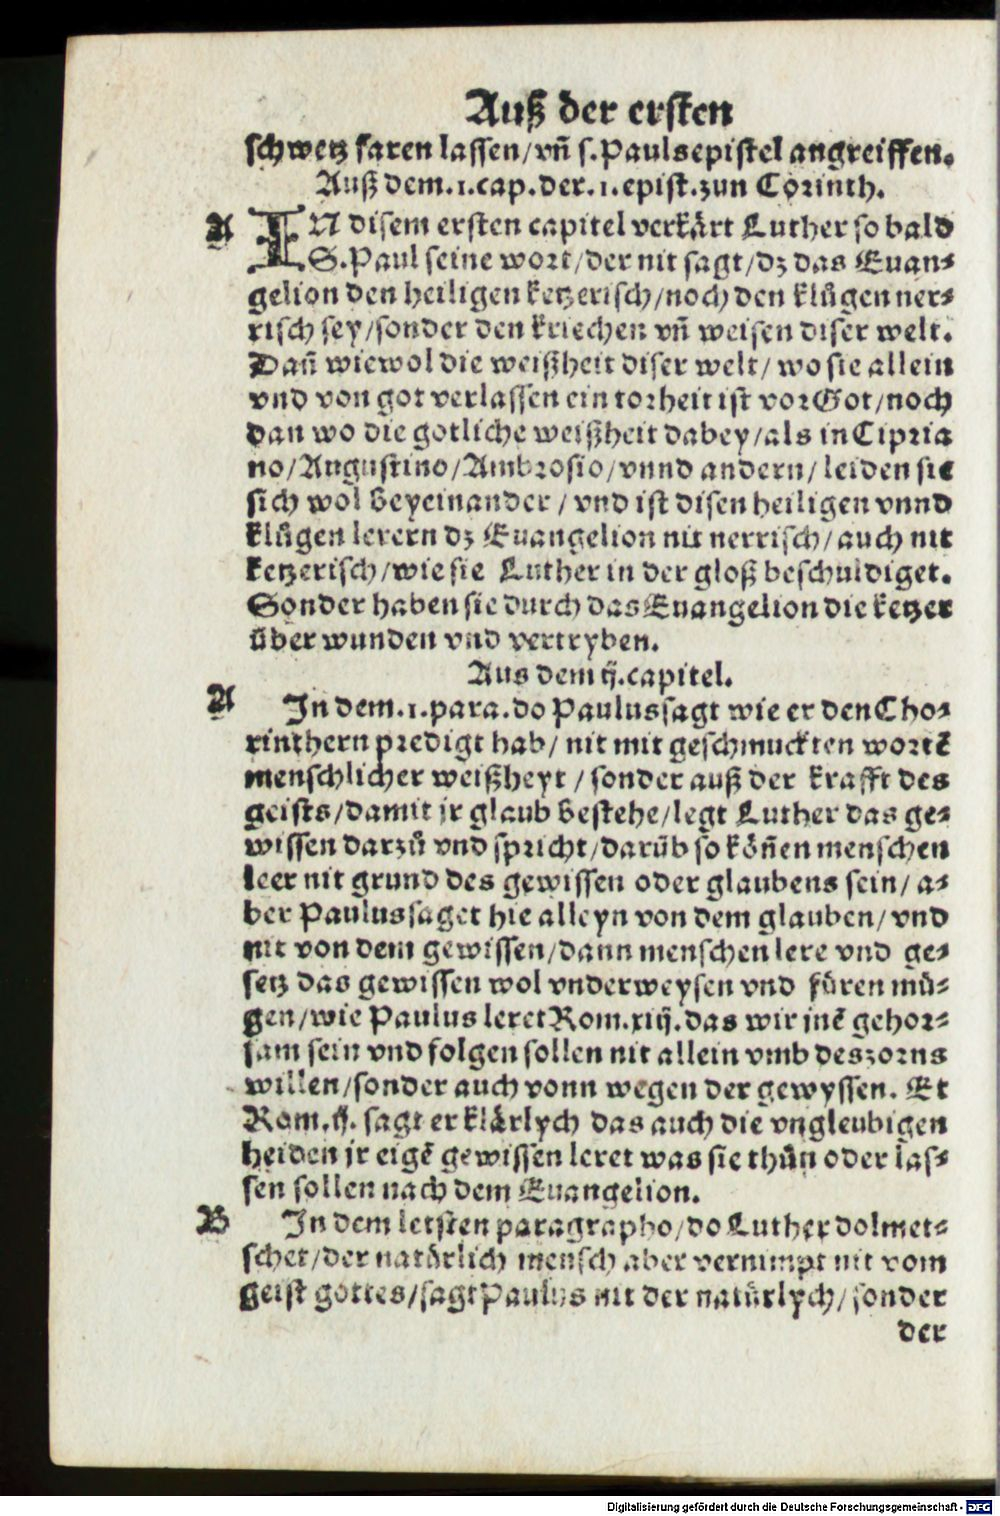 Auß der ersten
schwetz faren lassen/vñ s.Pauls epistel angreiffen.
Auß dem.1.cap.der.1.epist.zun Corinth.
A IN disem ersten capitel verkårt Luther so bald
S.Paul seine wort/der nit sagt/dz das Euan⸗
gelion den heiligen ketzerisch/noch den klůgen ner⸗
risch sey/sonder den kriechen vñ weisen diser welt.
Dañ wiewol die weißheit diser welt/wo sie allein
vnd von got verlassen ein torheit ist vor Got/noch
dan wo die gotliche weißheit dabey/als in Cipria
no/Augustino/Ambrosio/vnnd andern/leiden sie
sich wol beyeinander/vnd ist disen heiligen vnnd
klůgen lerern dz Euangelion nit nerrisch/auch nit
ketzerisch/wie sie Luther in der gloß beschuldiget.
Sonder haben sie durch das Euangelion die ketzer
über wunden vnd vertryben.
Aus dem ij.capitel.
A In dem.1.para.do Paulus sagt wie er den Cho⸗
rinthern predigt hab/nit mit geschmuckten wortē
menschlicher weißheyt/sonder auß der krafft des
geists/damit jr glaub bestehe/legt Luther das ge⸗
wissen darzů vnd spricht/darüb so köñen menschen
leer nit grund des gewissen oder glaubens sein/a⸗
ber Paulus saget hie alleyn von dem glauben/vnd
nit von dem gewissen/dann menschen lere vnd ge⸗
setz das gewissen wol vnderweysen vnd füren mü⸗
gen/wie Paulus leret Rom.xiij.das wir jnē gehor⸗
sam sein vnd folgen sollen nit allein vmb des zorns
willen/sonder auch vonn wegen der gewyssen. Et
Rom.ij.sagt er klårlych das auch die vngleubigen
heiden jr eigē gewissen leret was sie thůn oder las⸗
sen sollen nach dem Euangelion.
B In dem letsten paragrapho/do Luther dolmet⸗
schet/der natörlich mensch aber vernimpt nit vom
geist gottes/sagt Paulus nit der natürlych/sonder
der
Digitalisierung gefördert durch die Deutsche Forschungsgemeinschaft - DFG